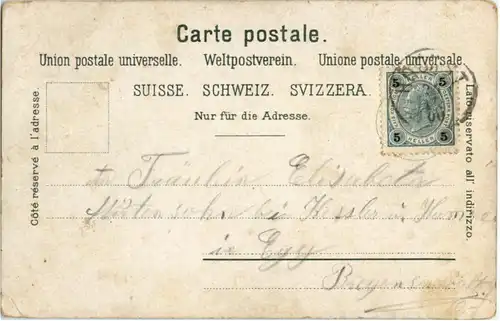 Carte postale.
Union postale universelle. Weltpostverein. Unione postale universale.
SUISSE. SCHWEIZ. SVIZZERA.
Nur für die Adresse.
Côté réservé à l'adresse.
Lato riservato all' indirizzo.
5 5
5 HELLER 5
Fräulein Elisabeth
bei Kessler
in Egg